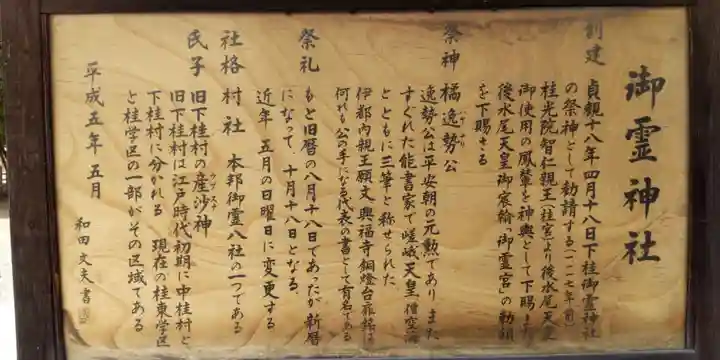 御霊神社
創建
貞観十八年四月十八日下桂御霊神社
の祭神として勧請する(一一一七年前)
桂光院智仁親王(桂宮)より後水尾天皇
御使用の鳳輦を神輿として下賜また
後水尾天皇御宸翰「御霊宮」の勅額
を下賜さる
祭神 橘逸勢公
逸勢公は平安朝の元勲であり また
すぐれた能書家で嵯峨天皇 僧空海
とともに三筆と称せられた
伊都内親王願文 興福寺銅燈台扉銘は
何れも公の手になる代表の書として有名である
祭礼 もと旧暦の八月十八日であったが新暦
になって、十月十八日となる、
近年 五月の日曜日に変更する
社格 村社 本邦御霊八社の一つである
氏子 旧下桂村の産沙神
ウブスナ
旧下桂村は江戸時代初期に中桂村と
下桂村に分かれる 現在の桂東学区
と桂学区の一部がその区域である
平成五年 五月
和田文夫書